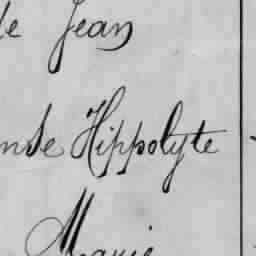 de Jean
nse Hippolyte
Marie